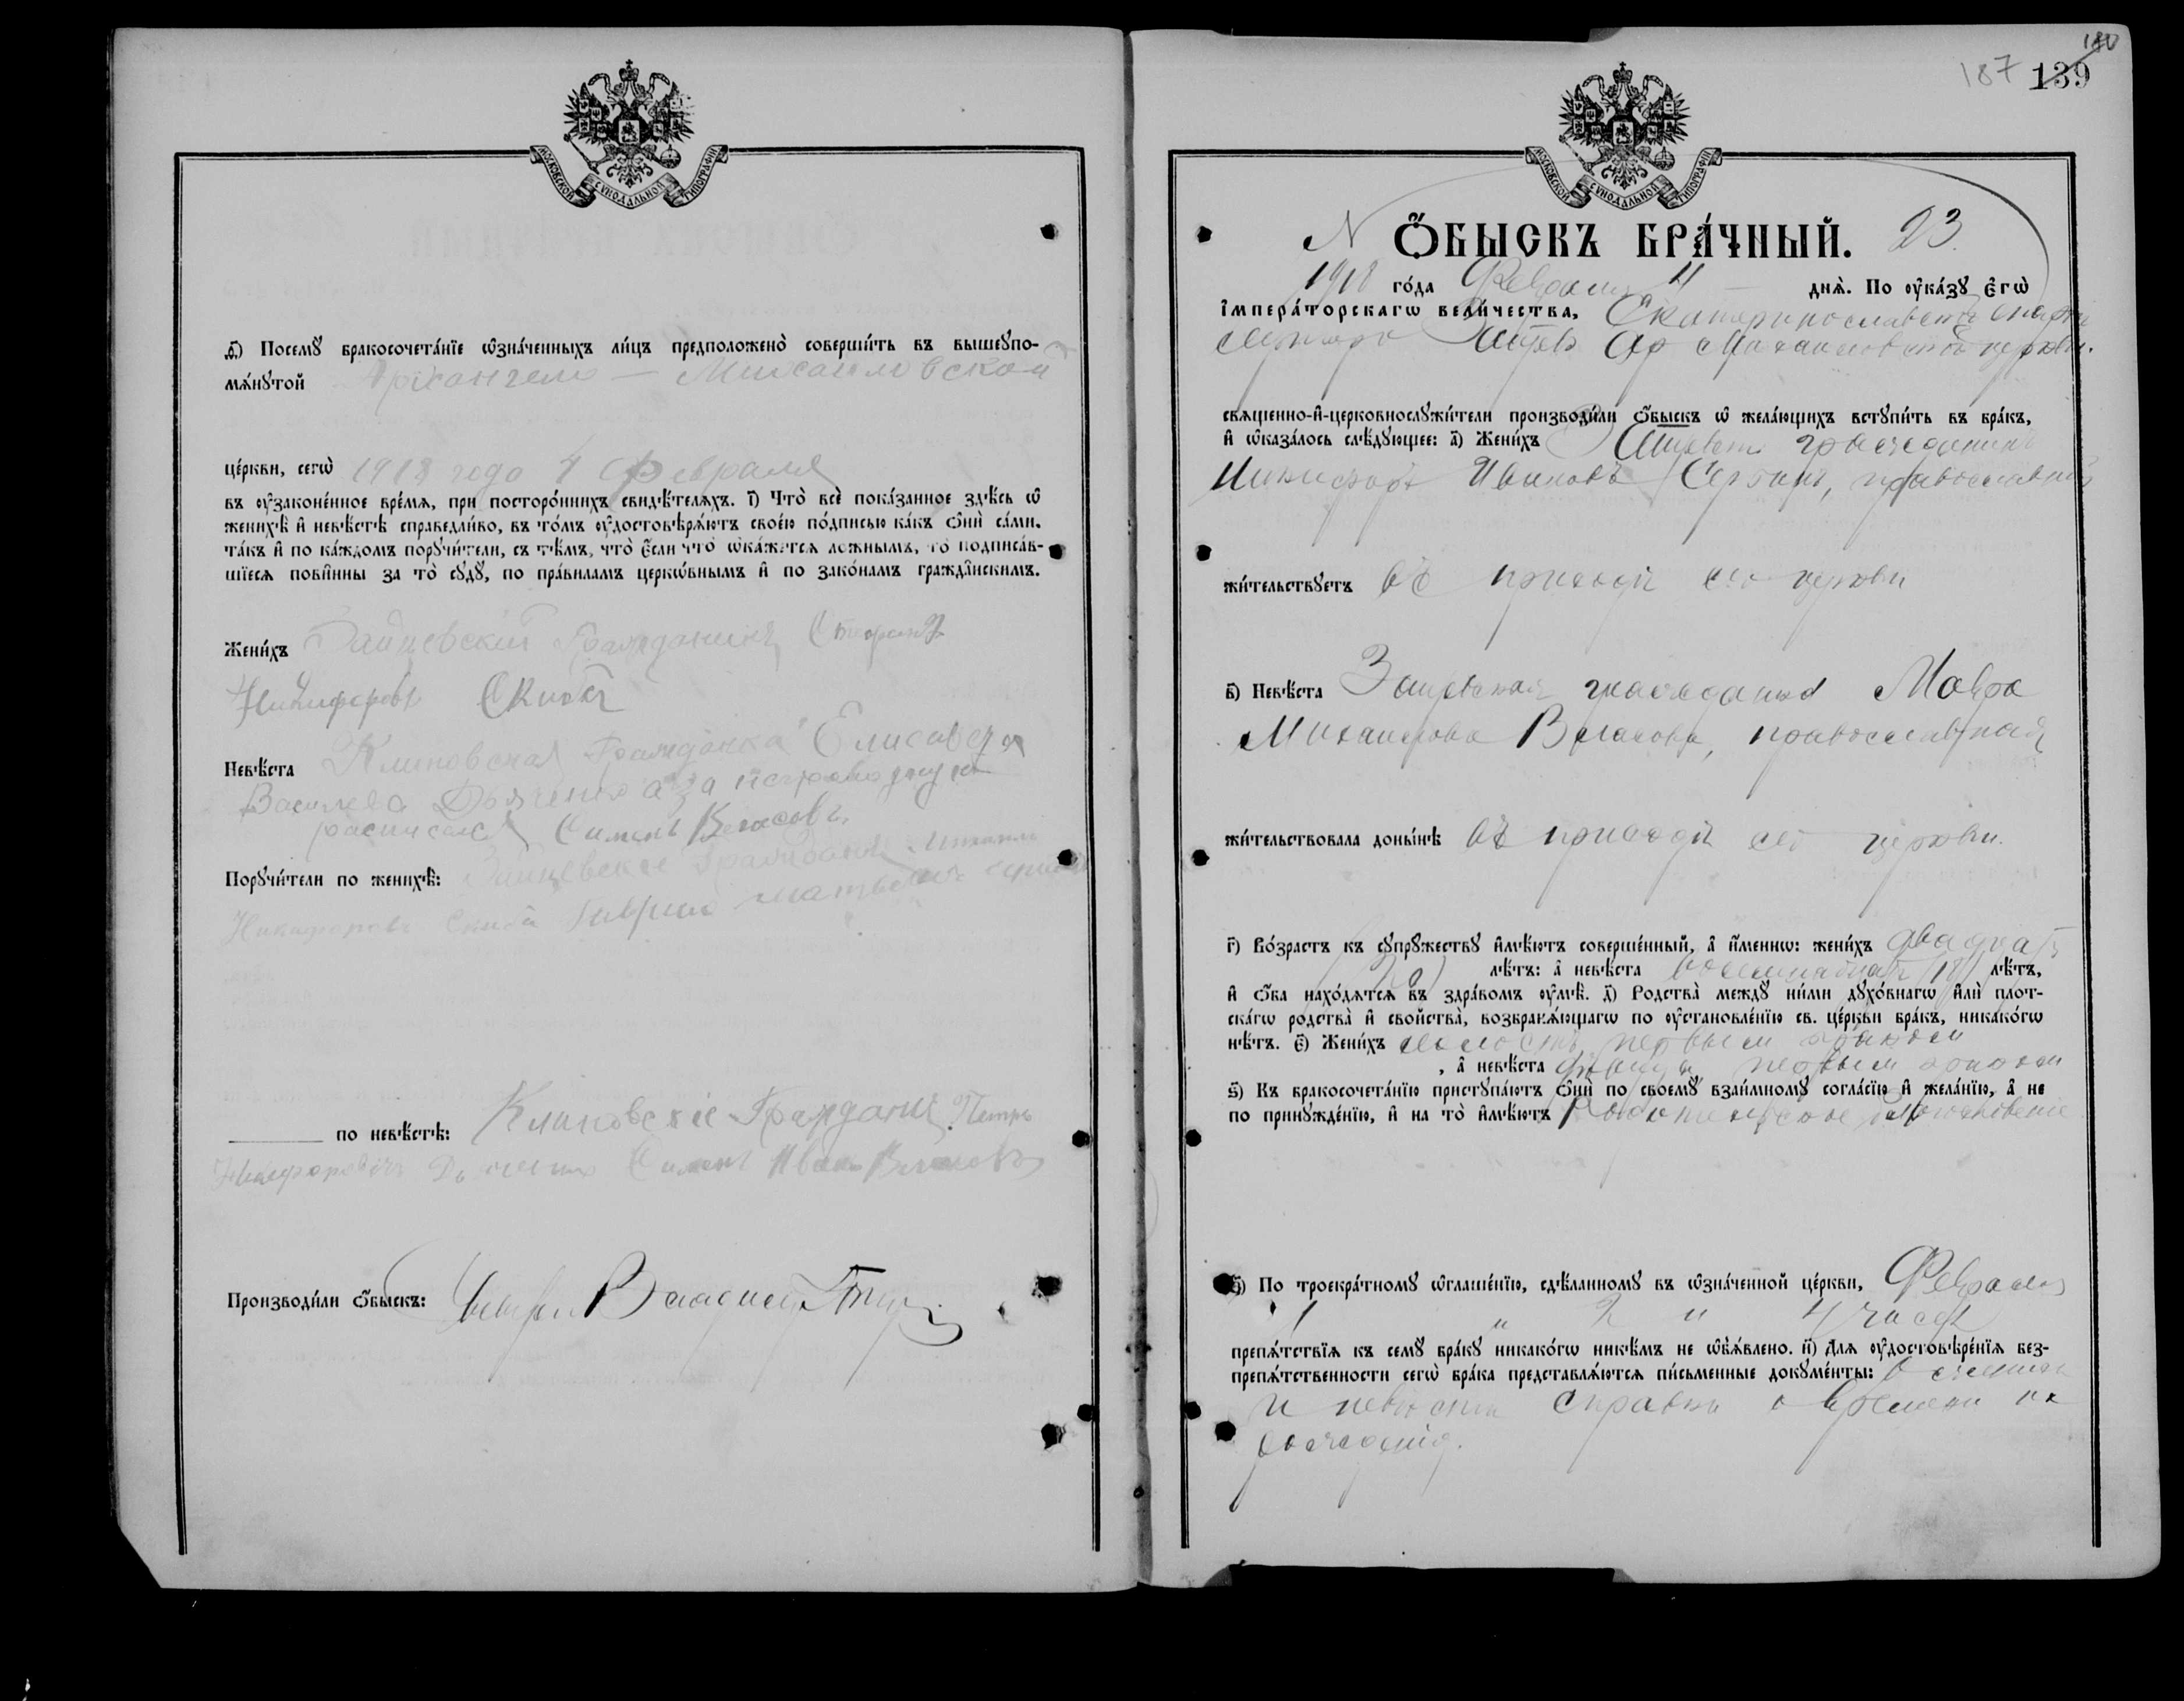 МОСКОВСКОЙ СѴНОДАЛЬНОЙ ТИПОГРАФІИ
ѳ҃) Посемꙋ бракосочета́нїе ѡ҆зна́ченныхъ ли́цъ предположено̀ соверши́ть въ вышеꙋпо-
мѧ́нꙋтой Архангело — Михаиловской
це́ркви, сегѡ̀ 1918 года 4 Февраля
въ ᲂу҆законе́нное вре́мѧ, при посторо́ннихъ свидѣ́телѧхъ. і҃) Что̀ всѐ пока́занное здѣ́сь ѡ҆
женихѣ̀ и҆ невѣ́стѣ справедли́во, въ то́мъ ᲂу҆достовѣрѧ́ютъ свое́ю по́дписью ка́къ ѻ҆нѝ са́ми,
та́къ и҆ по ка́ждомъ порꙋчи́тели, съ тѣ́мъ, что̀ є҆́сли что̀ ѡ҆ка́жетсѧ ло́жнымъ, то̀ подписа́в-
шїесѧ пови́нны за то̀ сꙋдꙋ̀, по пра́виламъ церкѡ́внымъ и҆ по зако́намъ гражда́нскимъ.
Жени́хъ Гражданинъ Стефанъ
Никифоровъ Скиба
Невѣ́ста Климовская Гражданка Елисавета
Василева Дьяченко а за неграмотную
расписался Симонъ Власовъ
Порꙋчи́тели по женихѣ̀: Зайцевские Граждане
Никифоровъ Скиба Гаврило
по невѣ́стѣ: Климовскіе Граждане Петръ
Никифоровичъ Симонъ Иван Власовъ
Производи́ли ѻ҆́быскъ:
187 139
МОСКОВСКОЙ СѴНОДАЛЬНОЙ ТИПОГРАФІИ
N ѺБЫСКЪ БРА́ЧНЫЙ. 23.
1918 го́да Февраля 4 днѧ̀. По ᲂу҆ка́зꙋ є҆гѡ̀
і҆мпера́торскагѡ вели́чества, Екатеринославской епархіи
Ар Михаиловской церкви.
свѧще́нно-и҆-церковнослꙋжи́тели производи́ли ѻ҆́быскъ ѡ҆ жела́ющихъ встꙋпи́ть въ бра́къ,
и҆ ѡ҆каза́лось слѣ́дꙋющее: а҃) Жени́хъ гражданинъ
Никифоръ Ивановъ православный
жи́тельствꙋетъ въ приходѣ сей церкви
в҃) Невѣ́ста Зайцевская гражданка Мавра
Михайлова Власова, православная
жи́тельствовала доны́нѣ въ приходѣ сей церкви.
г҃) Во́зрастъ къ сꙋпрꙋ́жествꙋ и҆мѣ́ютъ соверше́нный, а҆ и҆́менно: жени́хъ двадцать
(20) лѣ́тъ: а҆ невѣ́ста восемнадцать (18) лѣ́тъ,
и҆ ѻ҆́ба нахо́дѧтсѧ въ здра́вомъ ᲂу҆мѣ̀. д҃) Родства̀ междꙋ ни́ми дꙋхо́внагѡ и҆лѝ пло́т-
скагѡ родства̀ и҆ сво́йства, возбранѧ́ющагѡ по ᲂу҆становле́нїю св. це́ркви бра́къ, никако́гѡ
нѣ́тъ. є҃) Жени́хъ холостъ, первым браком
, а҆ невѣ́ста девица первым браком
ѕ҃) Къ бракосочета́нїю пристꙋпа́ютъ ѻ҆нѝ по своемꙋ̀ взаи́мномꙋ согла́сїю и҆ жела́нїю, а҆ не
по принꙋжде́нїю, и҆ на то̀ и҆мѣ́ютъ Родительское благословеніе
з҃) По троекра́тномꙋ ѡ҆глаше́нїю, сдѣ́ланномꙋ въ ѡ҆зна́ченной це́ркви, Февраля
1 " 2 и 4 числа
препѧ́тствїѧ къ семꙋ̀ бра́кꙋ никако́гѡ никѣ́мъ не ѡ҆б̾ѧ́влено. и҃) Длѧ ᲂу҆достовѣре́нїѧ без-
препѧ́тственности сегѡ̀ бра́ка представлѧ́ютсѧ пи́сьменные докꙋме́нты: о женихѣ
и невѣсти справки о времени их
рожденія.